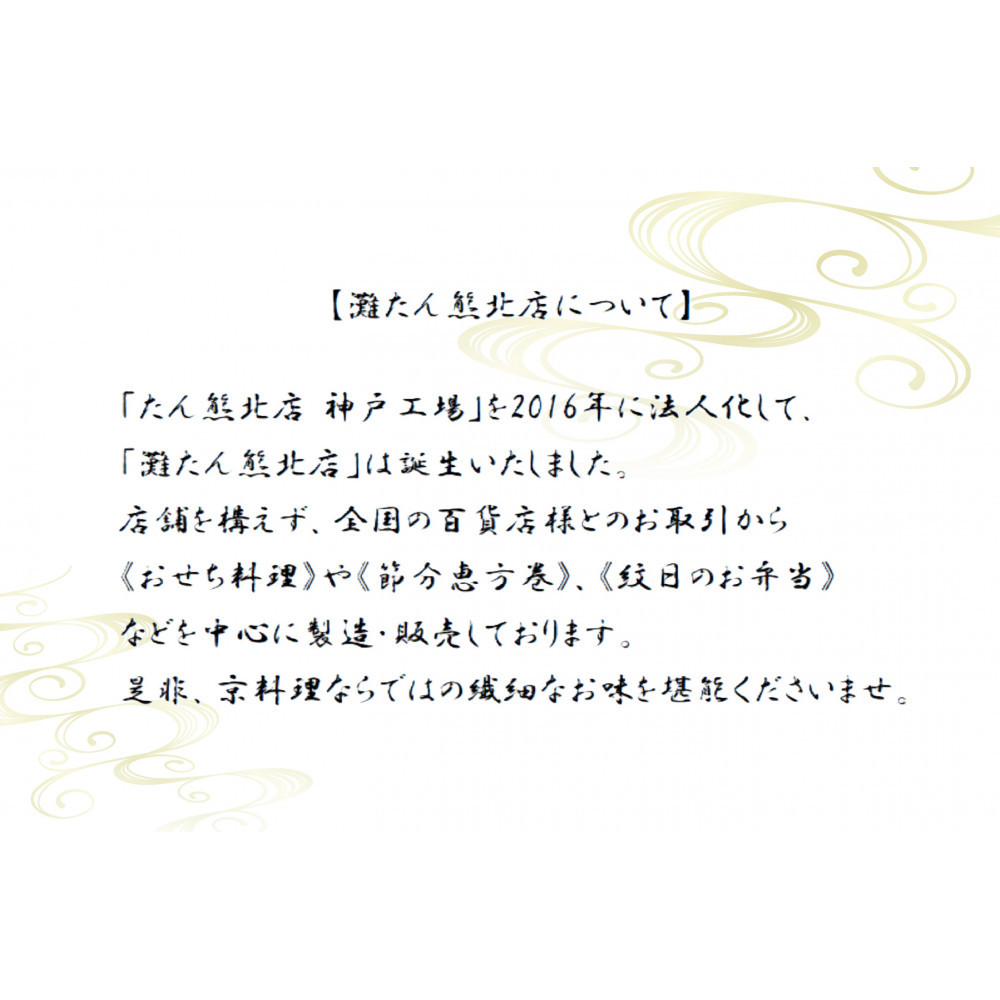 【灘たん熊北店について】
「たん熊北店 神戸工場」を2016年に法人化して、
「灘たん熊北店」は誕生いたしました。
店舗を構えず、全国の百貨店様とのお取引から
《おせち料理》や《節分恵方巻》、《紋日のお弁当》
などを中心に製造・販売しております。
是非、京料理ならではの繊細なお味を堪能くださいませ。